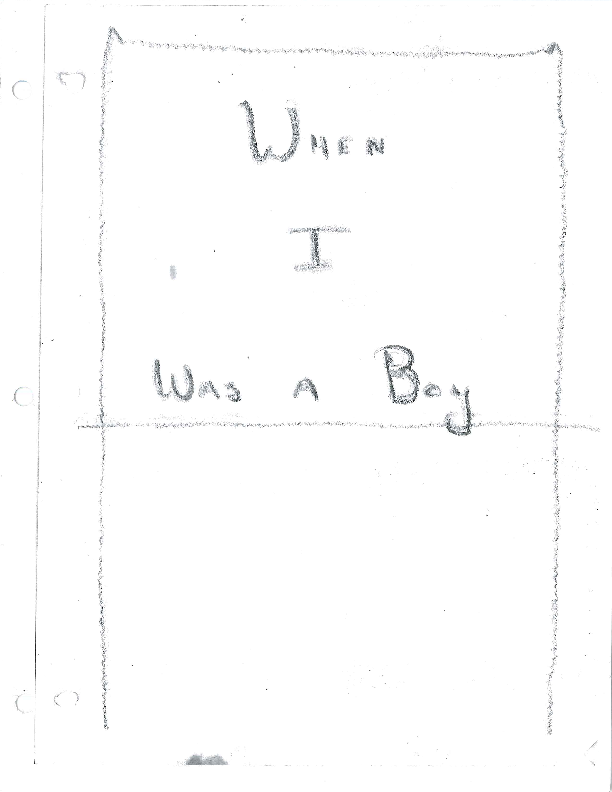 When
I
Was a Boy